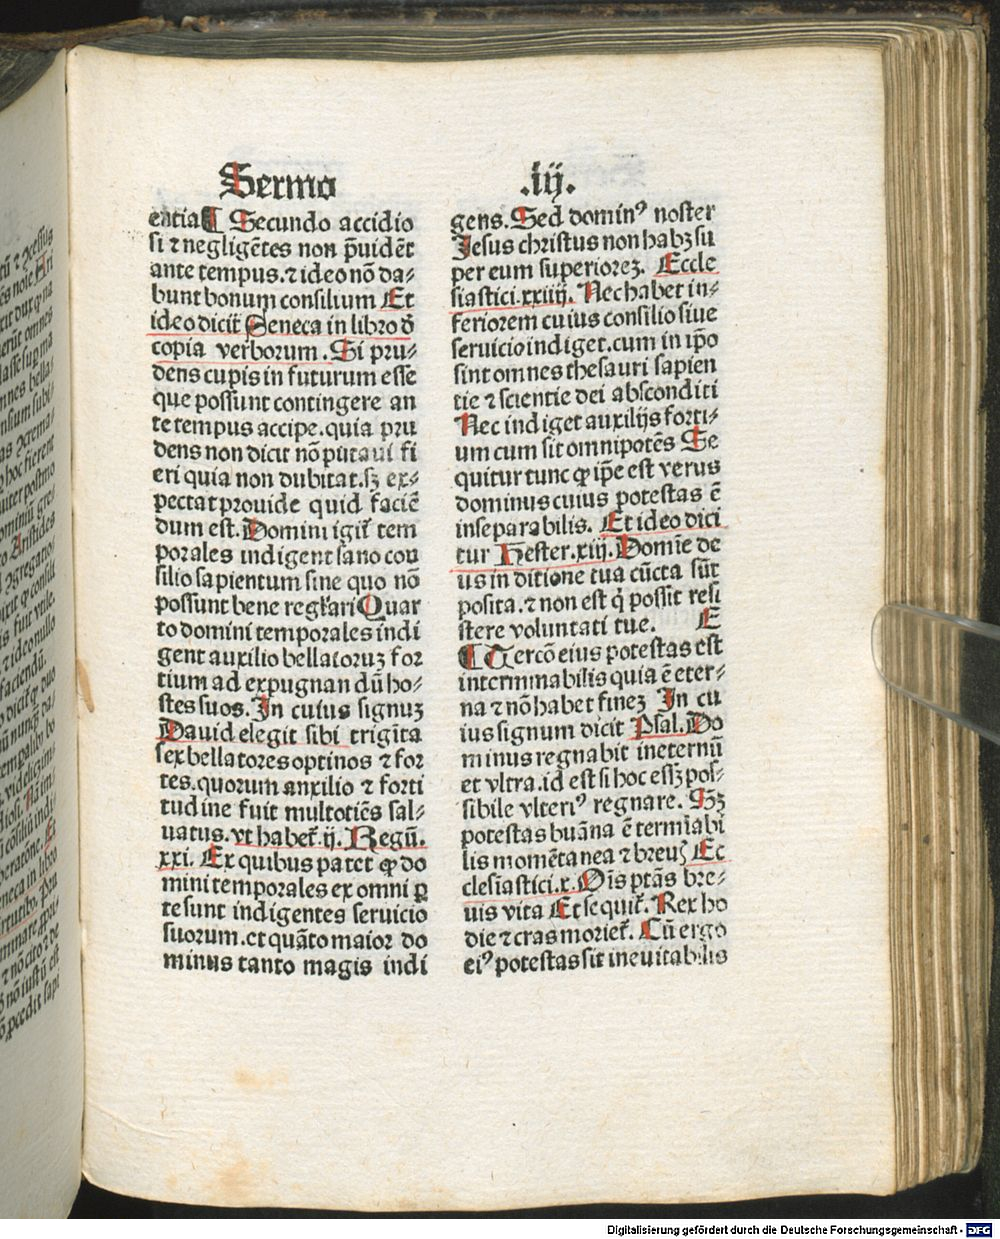 Sermo .iij.
entia¶ Secundo accidio
si ⁊ negligētes non p̄uidēt
ante tempus.⁊ ideo nō da⸗
bunt bonum consilium Et
ideo dicit̄ Seneca in libro đ
copia verborum . Si pru⸗
dens cupis in futurum esse
que possunt contingere an
te tempus accipe.quia pru
dens non dicit nō putaui fi
eri quia non dubitat.sꝫ ex⸗
pectat prouide quid faciē
dum est. Domini igit᷑ tem
porales indigent sano con
silio sapientum sine quo nō
possunt bene regl̓ari Quar
to domini temporales indi
gent auxilio bellatoruꝫ for
tium ad expugnandū ho⸗
stes suos. In cuius signuꝫ
Dauid elegit sibi triginta
sex bellatores optinos ⁊ for
tes.quorum anxilio ⁊ forti
tudine fuit multotiēs sal⸗
uatus. vt habet᷑.ij. Regū.
xxi. Ex quibus patet ꝙ do
mini temporales ex omni ꝑ
te sunt indigentes seruicio
suorum.et quāto maior do
minus tanto magis indi
gens. Sed dominꝰ noster
Jesus christus non habꝫ su
per eum superioreꝫ. Eccle
siastici.xxiiij. Nec habet in⸗
feriorem cuius consilio siue
seruicio indiget.cum in ip̄o
sint omnes thesauri sapien
tie ⁊ scientie dei absconditi
Nec indiget auxilijs forti⸗
um cum sit omnipotēs Se
quitur tunc ꝙ ip̄e est verus
dominus cuius potestas ē
inseparabilis. Et ideo dici
tur Hester.xiij. Domīe de
us in ditione tua cūcta sūt
posita.⁊ non est q̇ possit resi
stere voluntati tue. E
¶ Tercō eius potestas est
interminabilis quia ē eter⸗
na ⁊ nō habet fineꝫ In cu
ius signum dicit Psal. Do
minus regnabit in eternū
et vltra.id est si hoc essꝫ pos⸗
sibile vlteriꝰ regnare. Sꝫ
potestas huāna ē termīabi
lis momētanea ⁊ breuꝫ Ec
clesiastici.x. Oīs ptās bre⸗
uis vita Et sequit᷑. Rex ho
die ⁊ cras moriet᷑. Cū ergo
eiꝰ potestas sit ineuitabilis
Digitalisierung gefördert durch die Deutsche Forschungsgemeinschaft - DFG